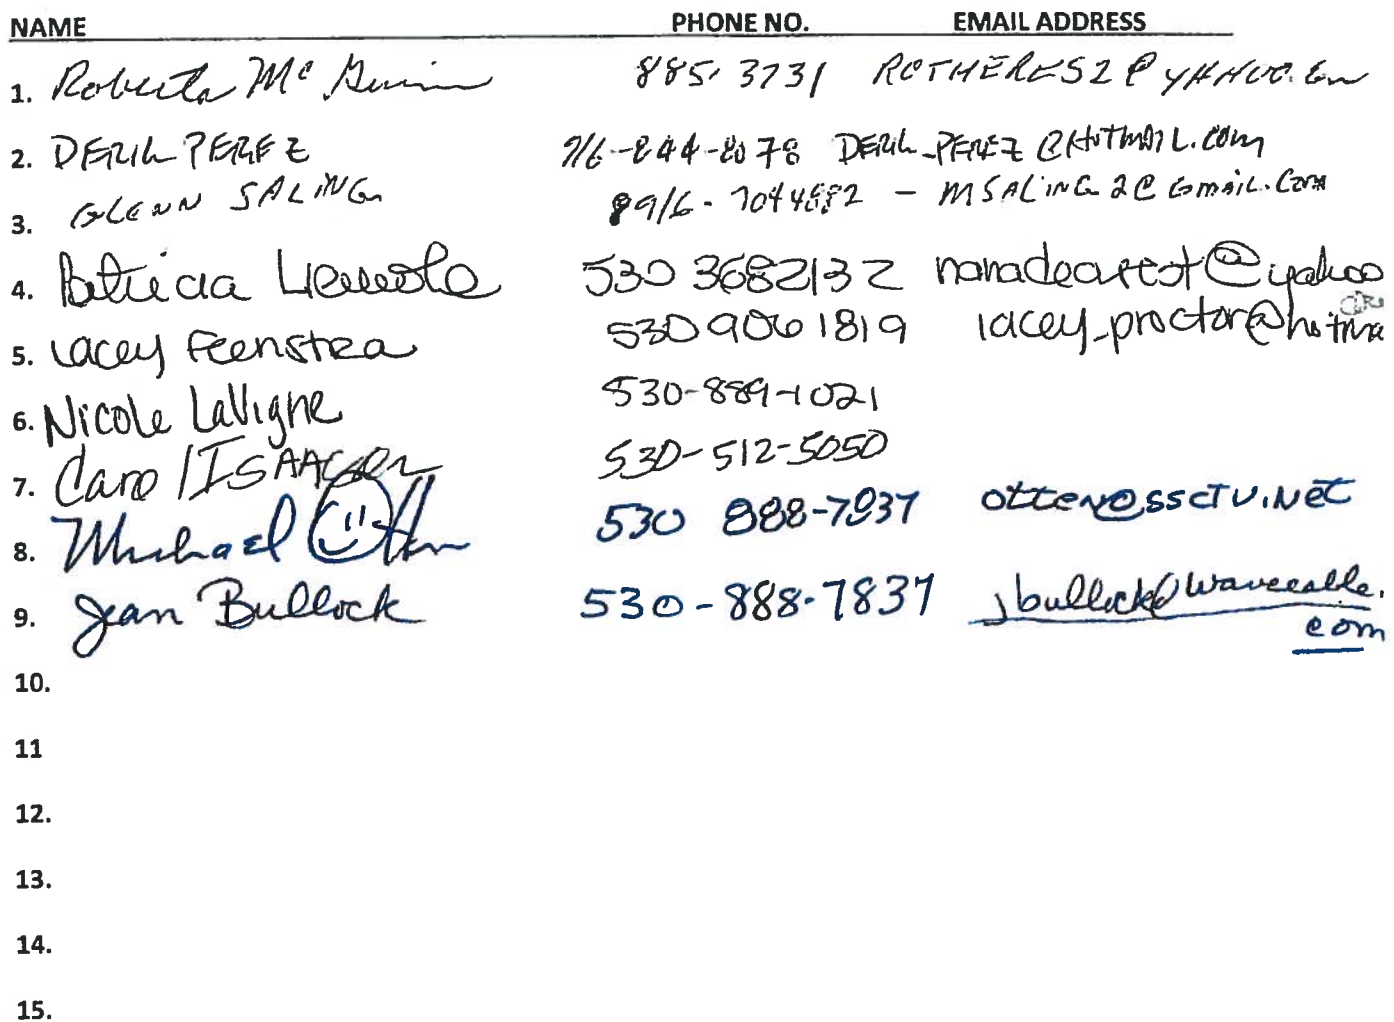 NAME PHONE NO. EMAIL ADDRESS
1. Roberta Mc 885-3731
2. DERIK PEREZ 916-844-8078 DERIK_PEREZ@HOTMAIL.COM
3. GLENN SALING 916-7044882 - MSALING2@GMAIL.COM
4. Patricia 530 3682132 nanadearest@yahoo
5. Lacey Feenstra 530 906 1819 lacey_proctor@hotma
6. Nicole LaVigne 530-889-1021
7. Carol ISAACSON 530-512-5050
8. Michael Otten 530 888-7837 otten@ssctv.net
9. Jean Bullock 530-888-7837 jbullock@wavecable.
com
10.
11
12.
13.
14.
15.